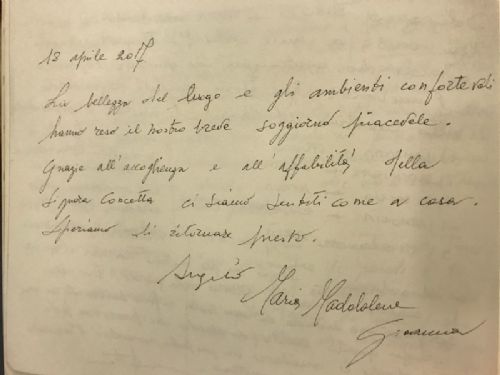 13 aprile 2017
La bellezza del luogo e gli ambienti confortevoli
hanno reso il nostro breve soggiorno piacevole.
Grazie all'accoglienza e all'affabilità della
signora Concetta ci siamo sentiti come a casa.
Speriamo di ritornare presto.
Maria Maddalena
Giovanna